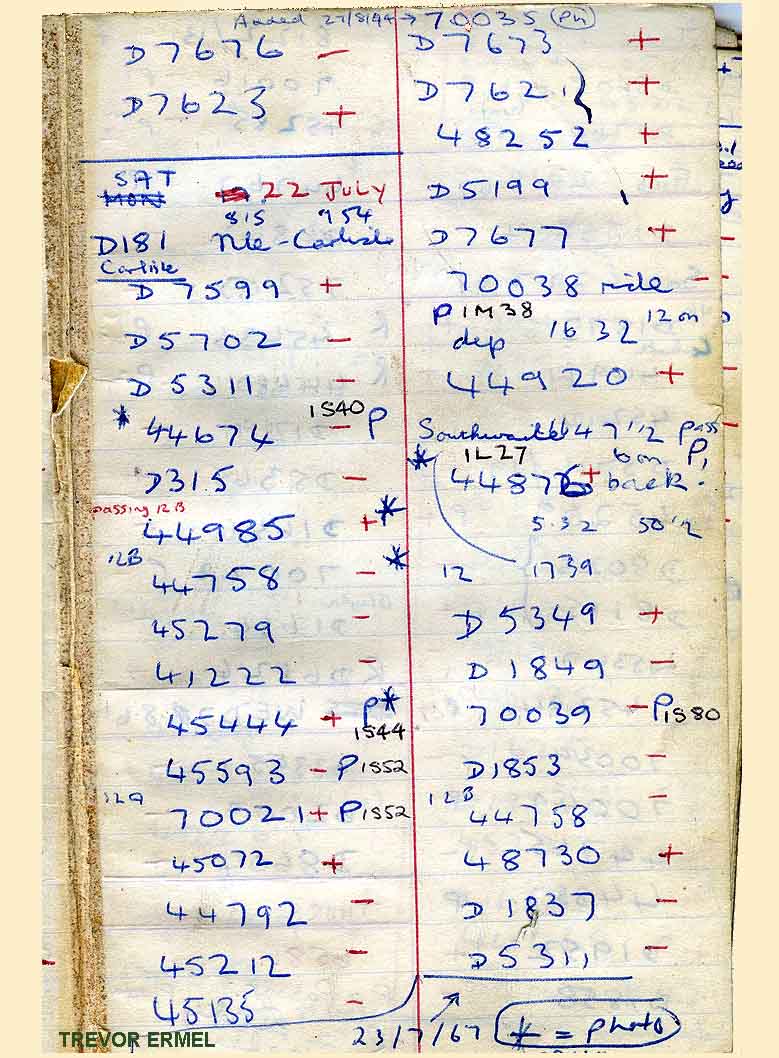 Added 27/8/94 → 70035 (PH)
D7676 -
D7623 +
SAT
MON 22 JULY
815 954
D181 Nle - Carlisle
Carlisle
D7599 +
D5702 -
D5311 -
1S40
* 44674 - P
D315 -
passing 12B
44985 + *
12B
44758 - *
45279 -
41222 -
45444 + P*
1S44
45593 - P 1S52
12A
70021 + P 1S52
45072 +
44792 -
45212 -
45135 -
D7673 +
D7621 +
48252 +
D5199 +
D7677 +
70038 mile -
P 1M38 1632 12 on
dep
44920 +
Southwaite 1647½ pass
1L27 6 on P,
* 44876 + back.
5.32 50½
12 1739
D5349 +
D1849 -
70039 - P 1S80
D1853 -
12B
44758 -
48730 +
D1837 -
D5311 -
23/7/67 * = photo
TREVOR ERMEL